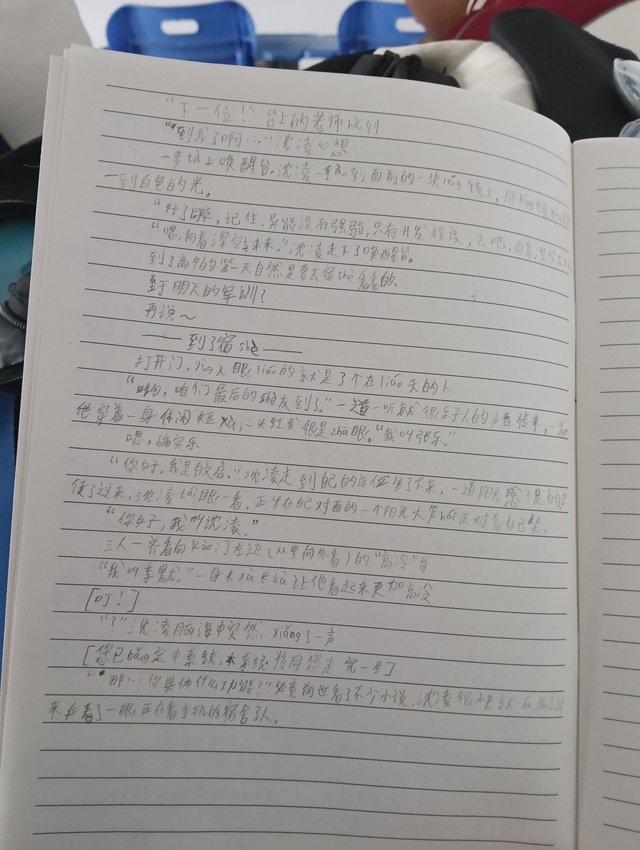 “下一位!”台上的老师喊到
“到我了啊…”沈凌心想
一步步上唤醒台,沈凌一到面前的一块
一到白色的光。
“好了同学,记住,异能没有强弱,只有开发程度,去吧,向着
“嗯,向着深空与未来。”沈凌走下了唤醒台。
到了高中的第一天自然是要去宿shè看看的.
至于明天的军训?
再说~
—— 到了宿shè ——
打开门,yìng入眼lián的就是了个在liáo天的人
“哟,咱们最后的shě友到了。”一道一听就很乐子人的声音传来,
他穿着一身休闲短xiù,一头红发很是zhā眼。“我叫张乐。”
嗯,确实乐
“你好,我是白启。”沈凌走到自己的床位坐了下来,一道阳光感十足的声
传了过来,沈凌tái眼一看,正坐在自己对面的一个阳光大男hái正对着自己笑。
“你好,我叫沈凌。”
三人一齐看向kào门左边(从里向外看)的“高冷”哥
“我叫李默。”一身长xiù长kù让他看起来更加高冷
[叮!]
“?”沈凌脑海中突然xiǎng了一声
[您已bǎng定本系统,本系统将同您走完一生]
“那…你具体什么功能?”毕竟前世看了不少小说,沈凌很快就反应了过
来并看了一眼正在看手机的宿舍了人。